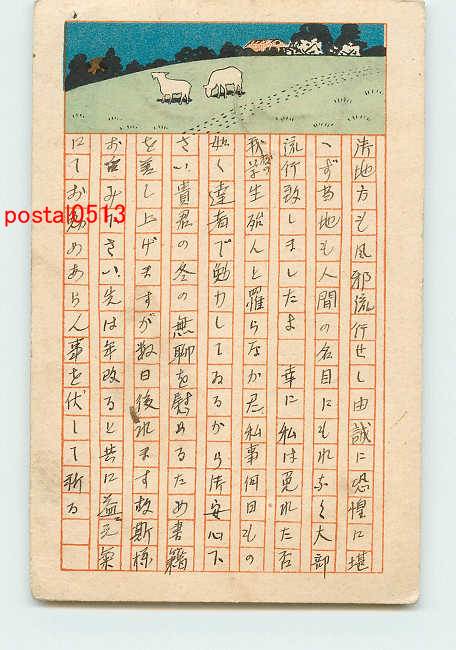 清地方も風邪流行せし由誠に恐惶に堪
へず当地も人間の名目にもれなく大部
流行致しましたよ 幸に私は免れた否
我校の学生殆んど罹らなかった私事何日もの
如く達者で勉力してゐるから御安心下
さい貴君の冬の無聊を慰めるため書籍
を差し上げますが数日後れます故斯様
お含み下さい先は年改ると共に益々元気
にてお勉めあらん事を伏して祈る
postal0513